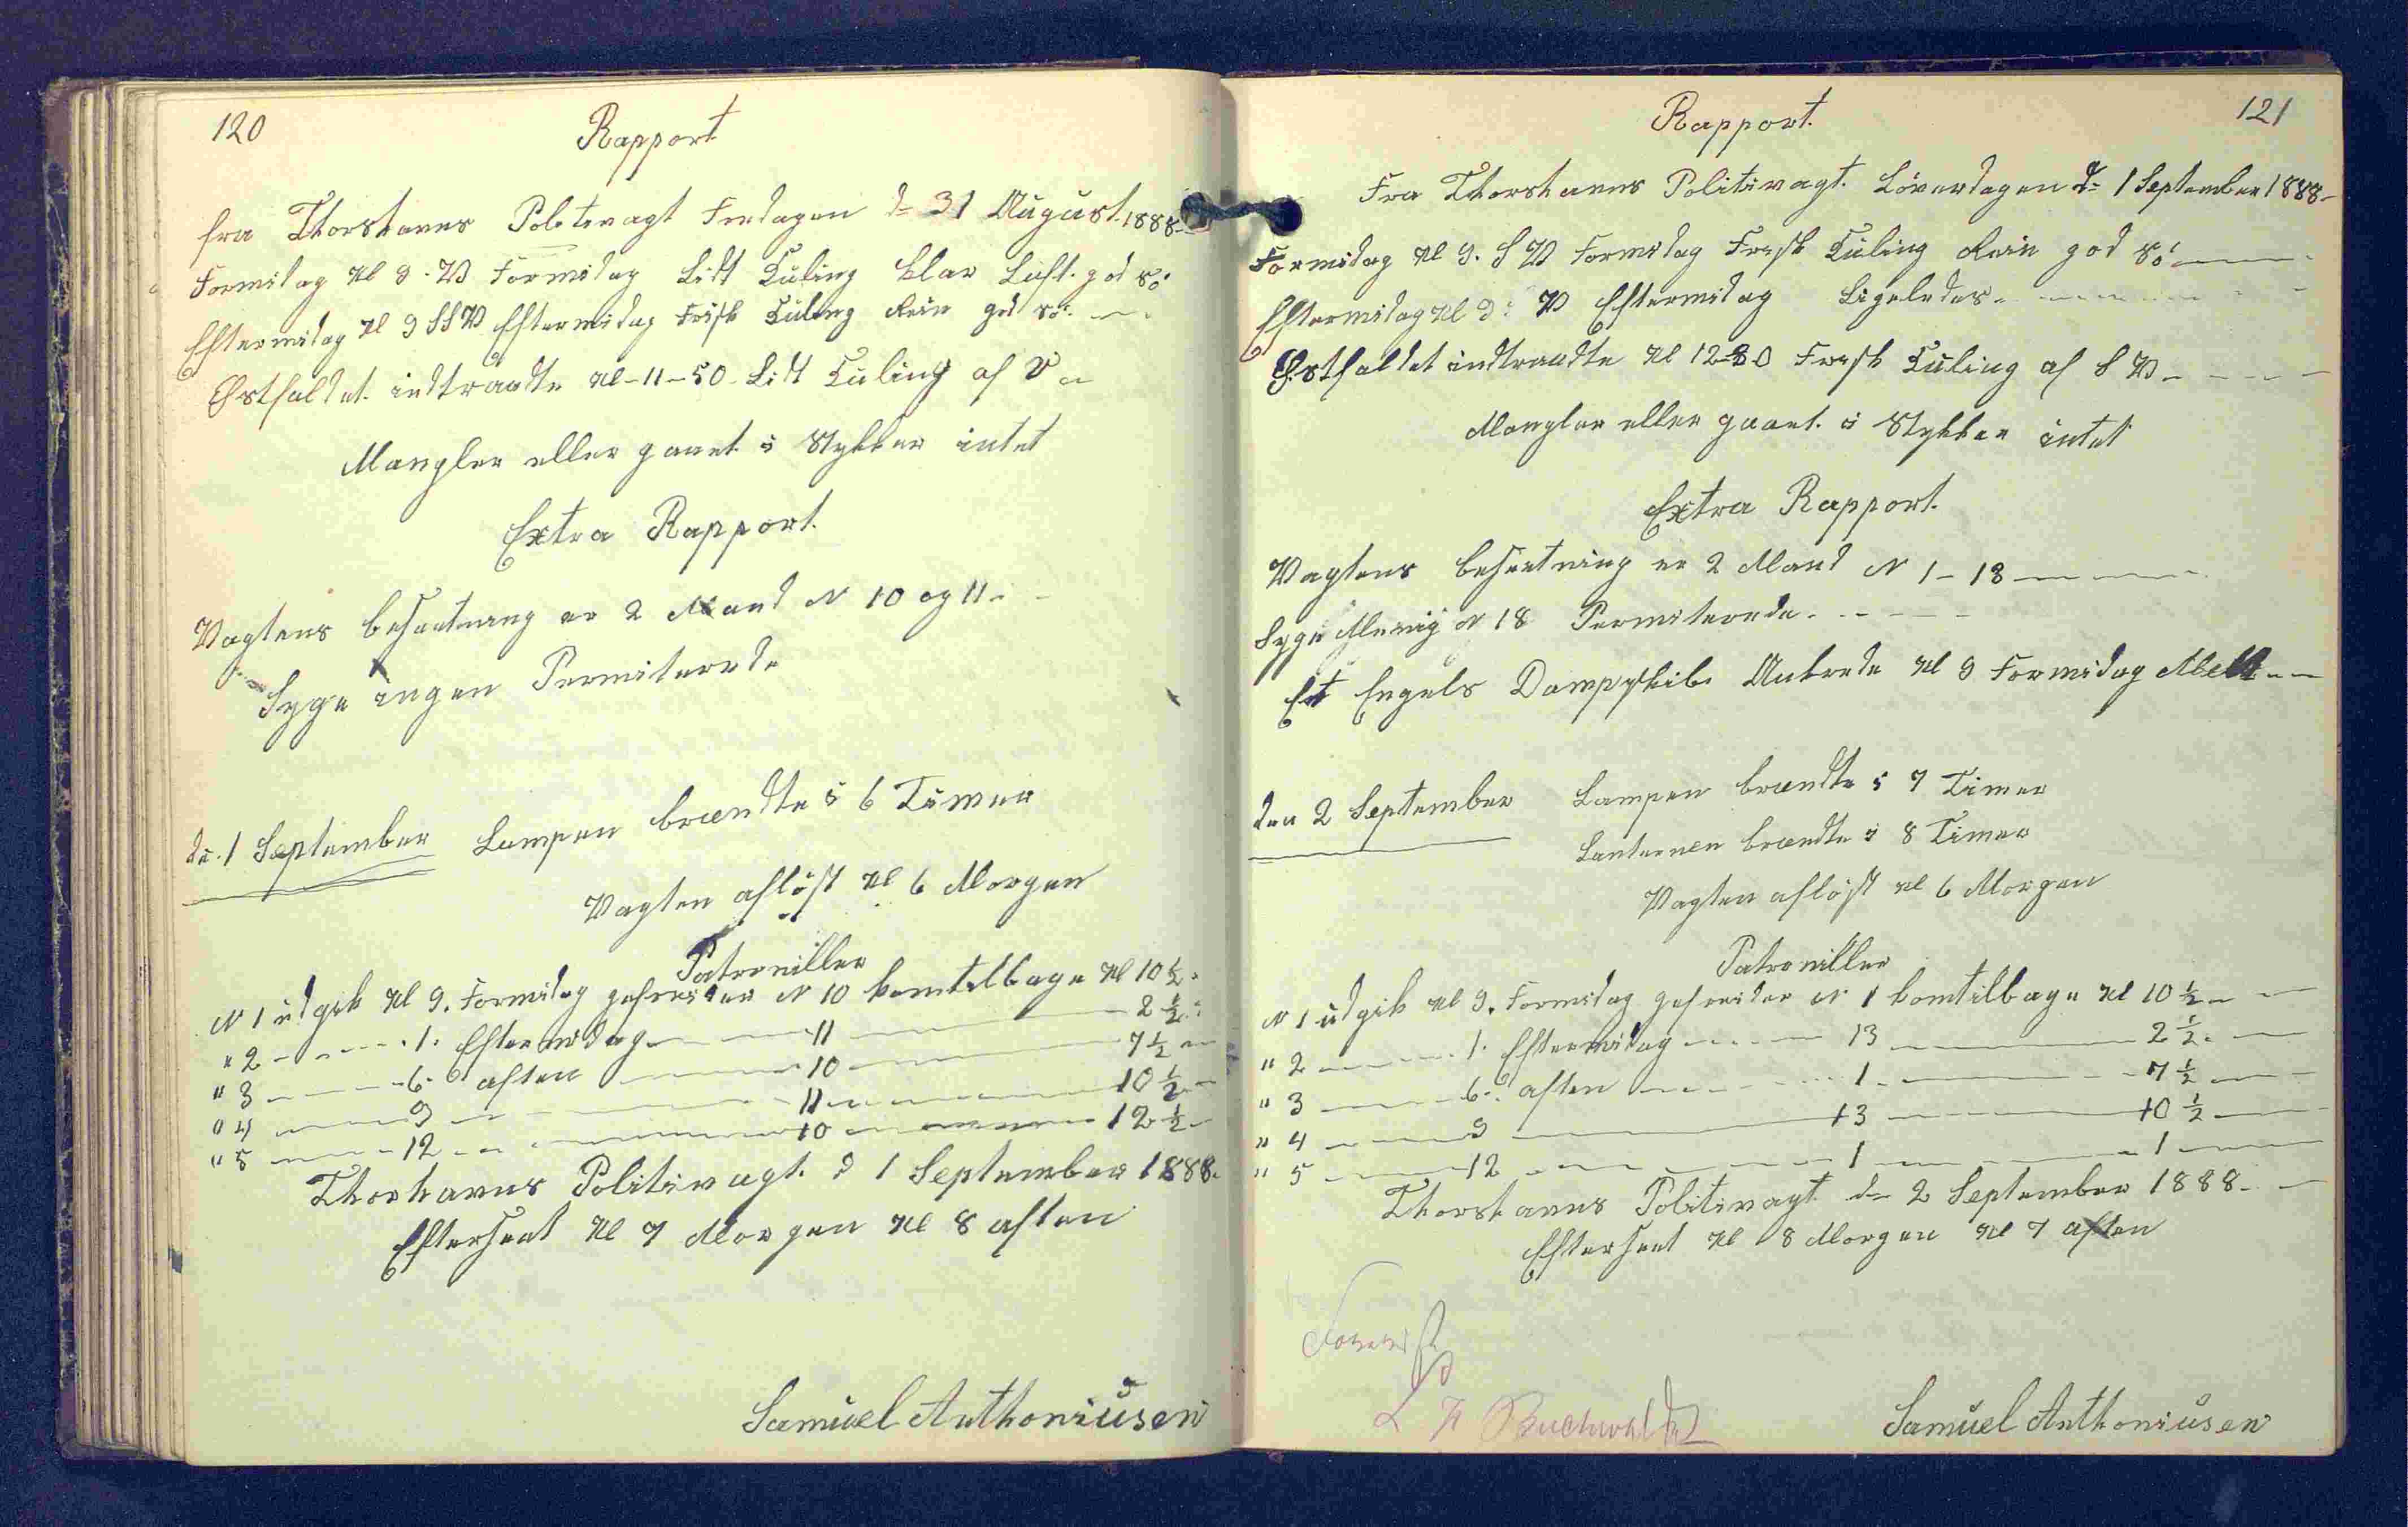 120
Rapport
fra Thorshavns Politivagt Fredagen d= 31 August 1888-
Formidag Kl 9 - V Formidag Lidt Kuling klar Luft. god sö.
Eftermidag Kl 9 SSV Eftermidag Frisk Kuling Rein god sö. -
Østfaldet indtraadte Kl-11-50- Lidt Kuling af V -
Mangler eller gaaet i Stykker intet
Extra Rapport.
Vagtens besætning er 2 Mand N 10 og 11 - -
Syge ingen Permiterede
de. 1 September Lampen brændte i 6 Timer
Vagten aflöst Kl 6 Morgen
Patroniller
N 1 udgik Kl 9. Formidag gefreider N 10 komtilbage Kl 10 ½ -
" 2 - - - - 1. Eftermidag - - - 11 - - - 2 ½ -
" 3 - - - 6- aften - - - 10 - - - 7 ½ -
" 4 - - - 9 - - - 11 - - - 10 ½ -
" 5 - - - 12 - - - 10 - - - 12 ½ -
Thorshavns Politivagt. d 1 September 1888.
Efterseet Kl 7 Morgen Kl 8 aften
Samuel Anthoniusen
121
Rapport.
Fra Thorshavns Politivagt. Löverdagen d= 1 September 1888-
Formidag Kl 9. S V Formidag Frisk Kuling Rein god sö -
Eftermidag Kl 9: V Eftermidag Ligeledes - - -
Østfaldet indtraadte Kl 12-30 Frisk Kuling af S V - - - -
Mangler eller gaaet. i Stykker intet
Extra Rapport.
Vagtens besætning er 2 Mand N 1 - 13 - - -
Syge Menig N 18 Permiterede - - - -
Et Engels Dampskib Ankrede Kl 9 Formidag - -
den 2 September Lampen brændte i 7 Timer
Lanternen brændte i 8 Timer
Vagten aflöst Kl 6 Morgen
Patroniller
N 1 udgik Kl 9. Formidag gefreider N 1 komtilbage Kl 10 ½ - -
" 2 - - - 1. Eftermidag - - - 13 - - - 2 ½ - -
" 3 - - - 6- aften - - - 1 - - - 7 ½ - -
" 4 - - - 9 - - - 13 - - - 10 ½ -
" 5 - - - 12 - - - 1 - - - 1 -
Thorshavns Politivagt d= 2 September 1888 - -
Efterseet Kl 8 Morgen Kl 7 aften
Forevist
Buchwaldt
Samuel Anthoniusen